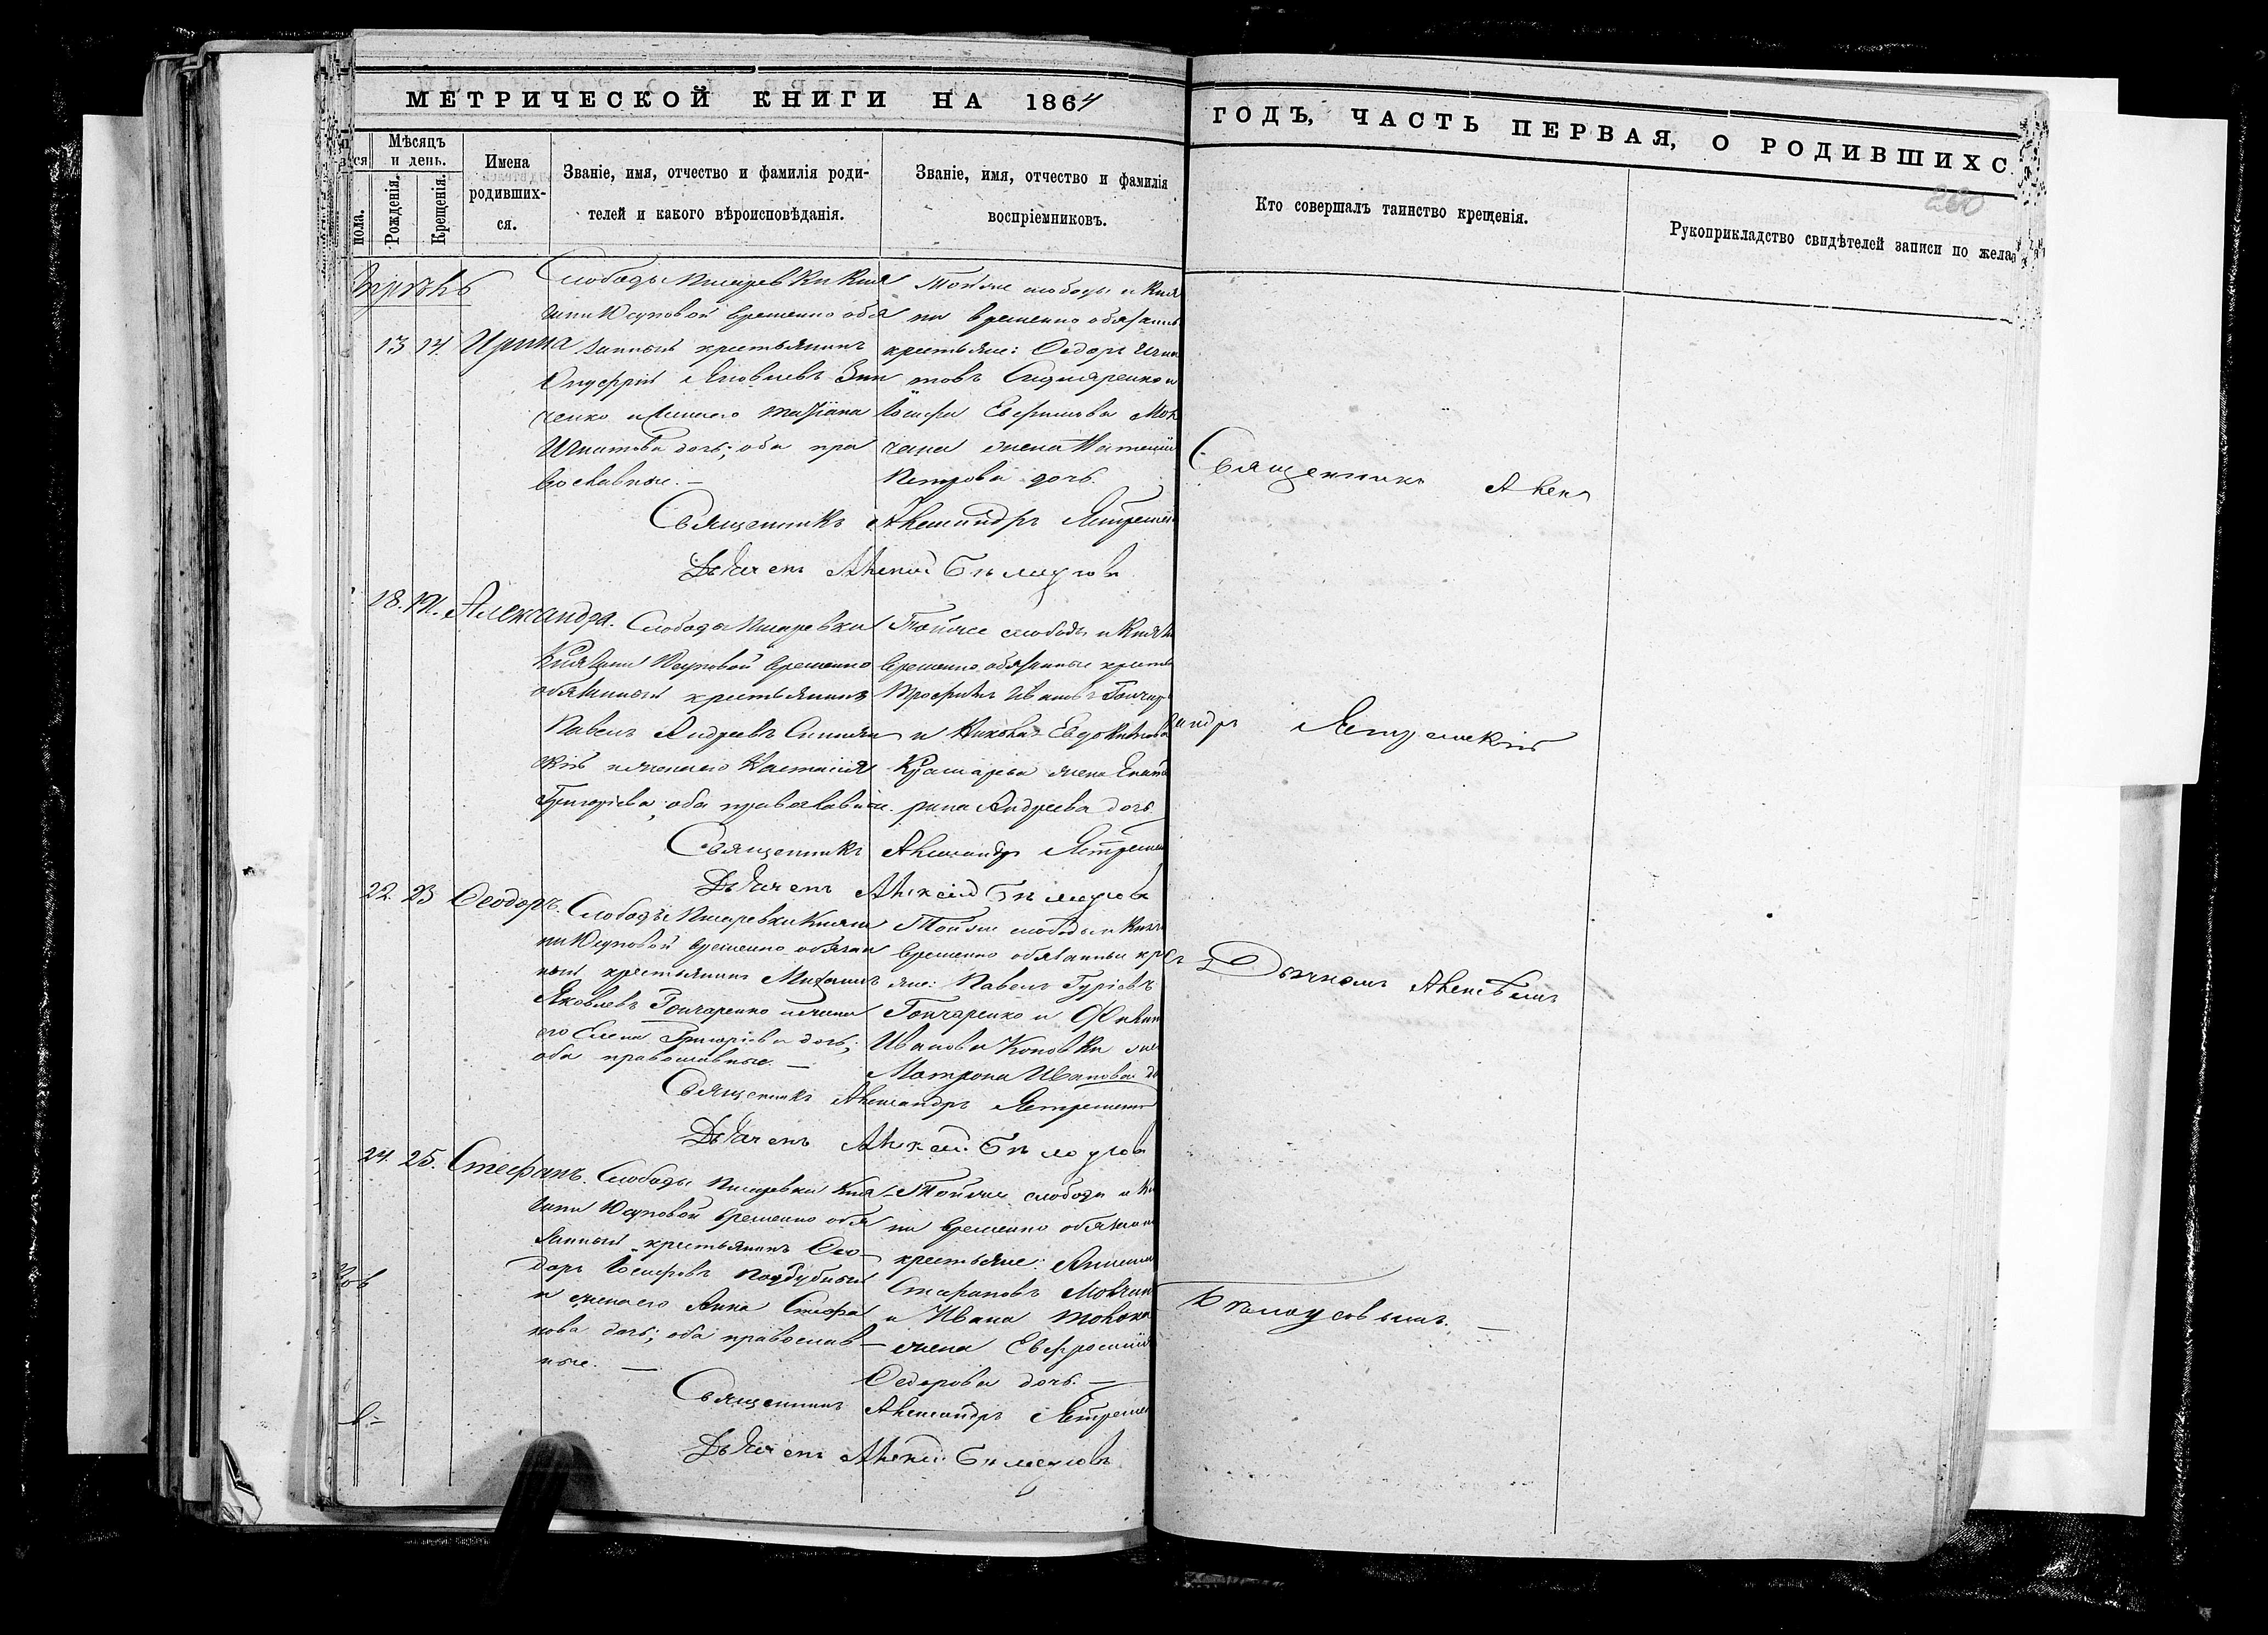 МЕТРИЧЕСКОЙ КНИГИ НА 1864
ГОДЪ, ЧАСТЬ ПЕРВАЯ, О РОДИВШИХС
260
Мѣсяцъ и день.
пола.
Рожденія.
Крещенія.
Имена родивших-
ся.
Званіе, имя, отчество и фамилія роди-
телей и какого вѣроисповѣданія.
Званіе, имя, отчество и фамилія
воспріемниковъ.
Кто совершалъ таинство крещенія.
Рукоприкладство свидѣтелей записи по жела
13 14. Ирина
Слободы Писаревки Кня
гини Юсуповой временно обя
занный крестьянинъ
Онуфрій Яковлевъ Зин
ченко и жена его Татіана
Игнатова дочь; оба пра
вославные. —
Той же слободы и Кня
ни временно обязанн
крестьяне: Ѳедоръ Игна
товъ Сидоренко и
Іосифа Ефимова Мов
чана жена Наталія
Петрова дочь.
Священникъ Александръ Ястремс
Дьячекъ Алексій Бѣлоусовъ
18. 19. Александра.
Слободы Писаревки
Княгини Юсуповой временно
обязанный крестьянинъ
Павелъ Андреевъ
скій и жена его Настасія
Григорієва; оба православные.
Той же слободы и Княги
временно обязанные крестья
Трофимъ Ивановъ Гончар
и Якова Евдокимова
Крамаря жена Екате
рина Андреева дочь
Священникъ Александръ Ястремс
Дьячекъ Алексій Бѣлоусовъ
22. 23 Ѳеодоръ.
Слободы Писаревки Княги
ни Юсуповой временно обязан
ный крестьянинъ Михаилъ
Яковлевъ Гончаренко и жена
его Елена Григорієва дочь;
оба православные. —
Той же слободы и Княги
временно обязанные крес
яне: Павелъ Гурієвъ
Гончаренко и
Иванова Коновки же
Матрона Иванова до
Священникъ Александръ Ястремск
Дьячекъ Алексій Бѣлоусовъ
24. 25. Стефанъ.
Слободы Писаревки Кня
гини Юсуповой временно обя
занный крестьянинъ Ѳео
доръ Іосифовъ Поддубный
и жена его Анна Стефа
нова дочь; оба православ
ные. —
Той же слободы и Кн
ни временно обязанн
крестьяне:
Стефановъ Мовчан
и Ивана
жена Евфросинія
Ѳедорова дочь. —
Священникъ Александръ Ястремс
Дьячекъ Алексій Бѣлоусовъ
Священникъ Алек
сандръ Ястремскій
съ Дьячкомъ Алексіемъ
Бѣлоусовымъ. —